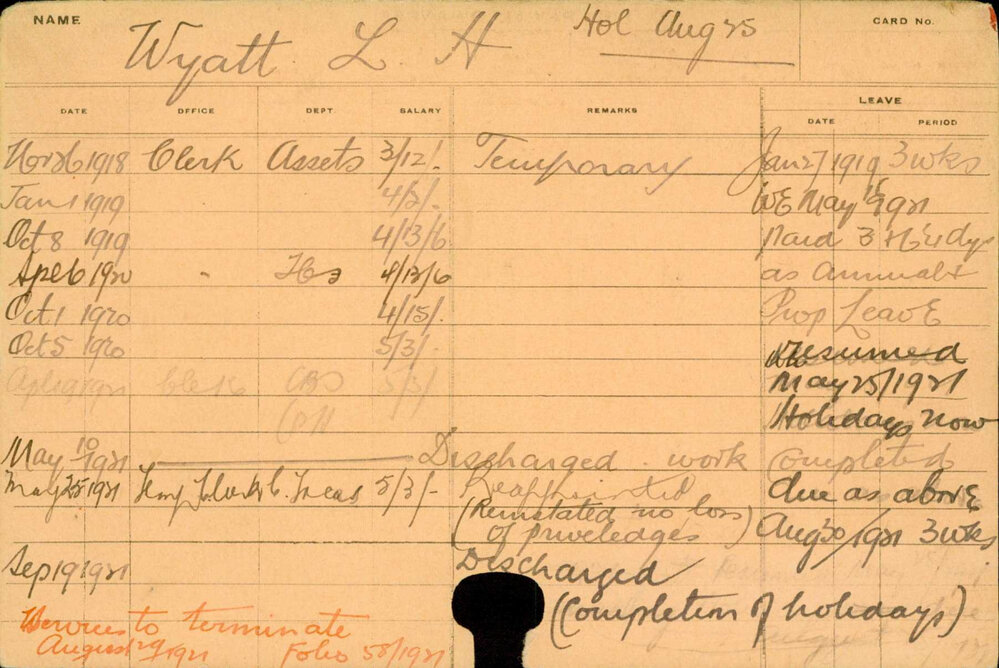 NAME
Wyatt L. H
Hol Aug 25
CARD No.
DATE OFFICE DEPT SALARY REMARKS LEAVE
DATE PERIOD
1918 Clerk Assets 3/12/- Temporary Jan 27 1919 3 wks
Jan 1 1919 4/2/- WE May 1921
Oct 8 1919 4/13/6 Paid 3
1920 4/13/6 as Annual &
Oct 1 1920 4/15/- Prop Leave
Oct 5 1920 5/3/- resumed
1921 Clerk 5/3/- May 25/1921
Holidays now
May 10 1921 Discharged work completed
May 25 1921 5/3/- Reappointed due as above
(Reinstated no loss
of priveledges) Aug 30/1921 3 wks
Sep 19 1921 Discharged
(Completion of holidays)
Services to terminate
August 29/1921 Folio 58/1921